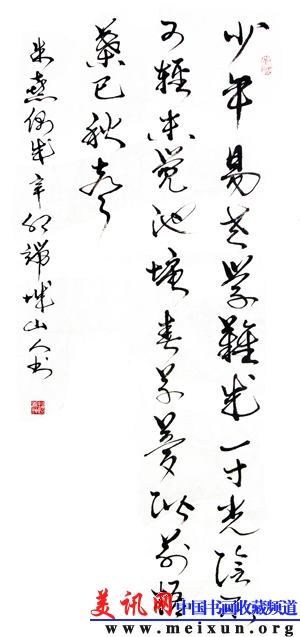 少年易老學難成一寸光陰不
可輕未覺池塘春草夢階前梧
葉已秋聲
朱熹偶成辛卯端城山人书
美讯网 中国书画收藏频道
www.meixun.org